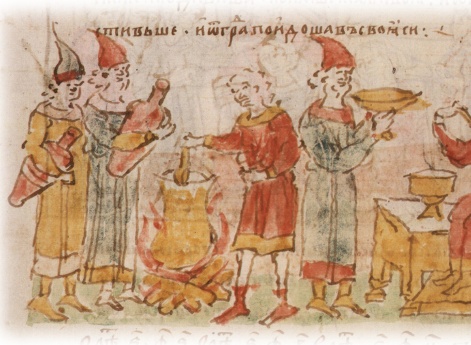 стивьше · иѿграⷣпоидошавъсвоꙗси:·